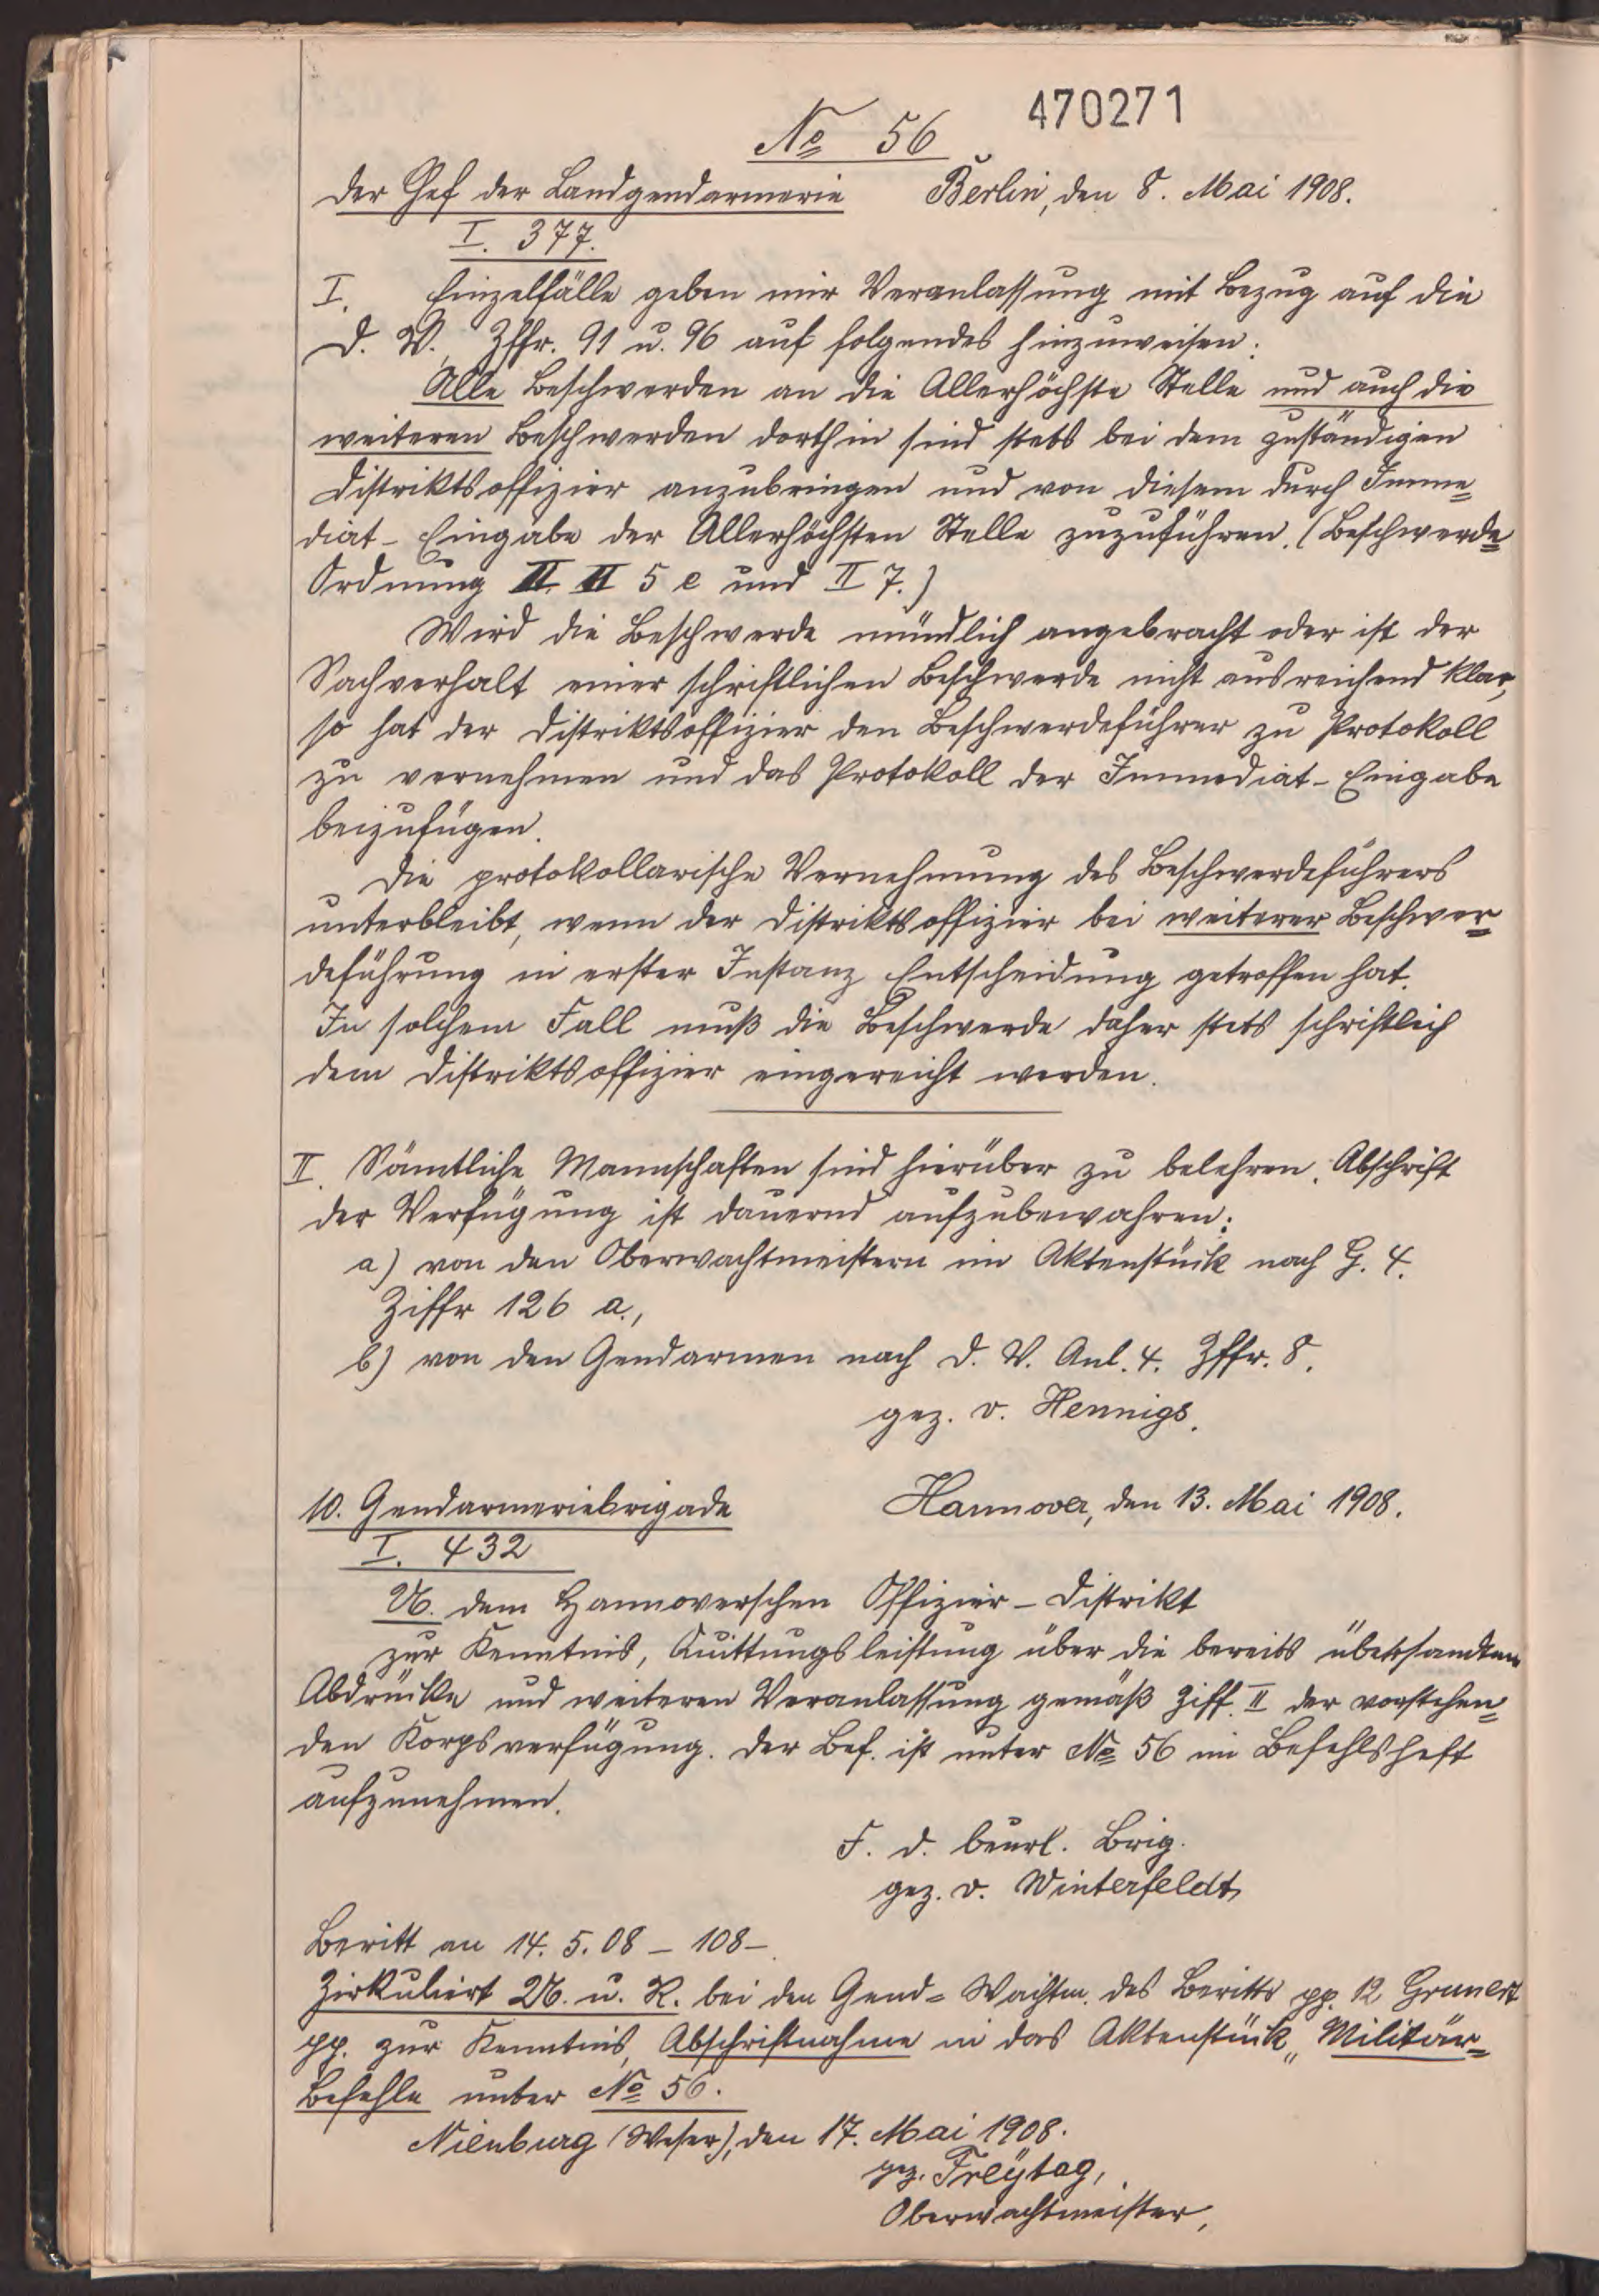 470271
No 56
Der Chef der Landgendarmerie Berlin, den 8. Mai 1908.
I. 377.
I. Einzelfälle geben mir Veranlassung mit Bezug auf die
D. V. Zffr. 91 u. 96 auf folgendes hinzuweisen:
Alle Beschwerden an die Allerhöchste Stelle und auch die
weiteren Beschwerden dorthin sind stets bei dem zuständigen
Distriktsoffizier anzubringen und von diesem durch Imme=
diat-Eingabe der Allerhöchsten Stelle zuzuführen. (Beschwerde=
Ordnung II. II 5 e und II 7.)
Wird die Beschwerde mündlich angebracht oder ist der
Sachverhalt einer schriftlichen Beschwerde nicht ausreichend klar,
so hat der Distriktsoffizier den Beschwerdeführer zu Protokoll
zu vernehmen und das Protokoll der Immediat-Eingabe
beizufügen.
Die protokollarische Vernehmung des Beschwerdeführers
unterbleibt, wenn der Distriktsoffizier bei weiterer Beschwer=
deführung in erster Instanz Entscheidung getroffen hat.
In solchem Fall muß die Beschwerde daher stets schriftlich
dem Distriktsoffizier eingereicht werden.
II. Sämtliche Mannschaften sind hierüber zu belehren. Abschrift
der Verfügung ist dauernd aufzubewahren:
a) von den Oberwachtmeistern im Aktenstück nach G. 4.
Ziffr 126 a.,
b) von den Gendarmen nach D. V. Anl. 4. Zffr. 8.
gez. v. Hennigs.
10. Gendarmeriebrigade Hannover, den 13. Mai 1908.
I. 432
U. dem Hannoverschen Offizier-Distrikt
zur Kenntnis, Quittungsleistung über die bereits übersandten
Abdrücke und weiteren Veranlassung gemäß Ziff. II der vorstehen=
den Korpsverfügung. Der Bef. ist unter No 56 im Befehlsheft
aufzunehmen.
F. d. beurl. Brig.
gez. v. Winterfeldt
Beritt an 14. 5. 08 - 108 -
Zirkuliert U. u. R. bei den Gend= Wachtm. des Beritts pp. 12 Grunert
pp. zur Kenntnis, Abschriftnahme in das Aktenstück „Militär=
Befehle unter No 56.
Nienburg (Weser), den 17. Mai 1908.
gez. Freÿtag,
Oberwachtmeister,